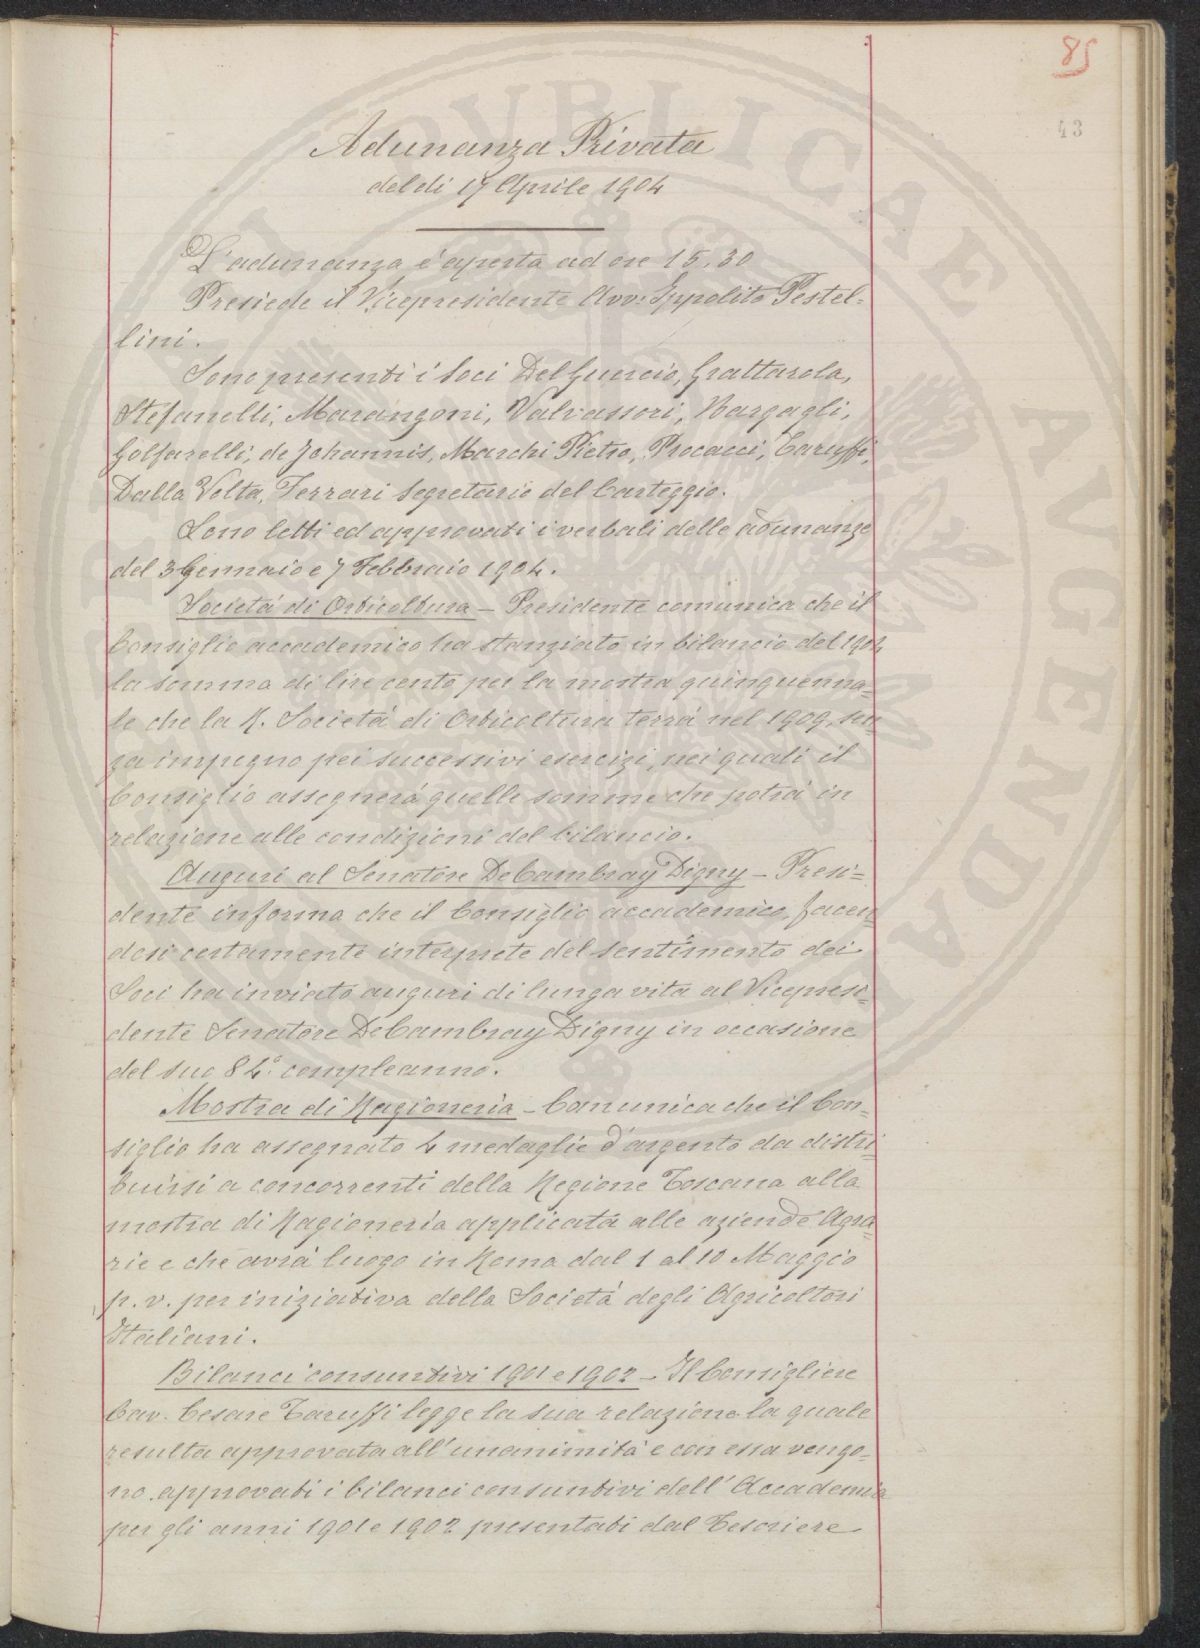 85
43
Adunanza Privata
del di 17 Aprile 1904
L'adunanza é aperta ad ore 15,30
Presiede il Vicepresidente Avv: Ippolito Pestel=
lini.
Sono presenti i Soci Del Guercio, Grattarola,
Stefanelli, Marangoni, Valvassori, Bargagli,
Golfarelli, de Johannis, Marchi Pietro, Procacci, Taruffi,
Dalla Volta, Ferrari Segretario del Carteggio.
Sono letti ed approvati i verbali delle adunanze
del 3 Gennaio e 7 Febbraio 1904.
Societá di Orticoltura - Presidente comunica che il
Consiglio accademico ha stanziato in bilancio del 1904
la somma di lire cento per la mostra quinquenna=
le che la R. Societá di Orticoltura terrá nel 1909, sen=
za impegno pei successivi esercizi, nei quali il
Consiglio assegnerá quelle somme che potrá in
relazione alle condizioni del bilancio.
Auguri al Senatore De Cambray Digny - Presi=
dente informa che il Consiglio accademico, facen=
dosi certamente interprete del sentimento dei
Soci ha inviato auguri di lunga vita al Vicepresi=
dente Senatore De Cambray Digny in occasione
del suo 84° compleanno.
Mostra di Ragioneria - Comunica che il Con=
siglio ha assegnato 4 medaglie d'argento da distri=
buirsi a concorrenti della Regione Toscana alla
mostra di Ragioneria applicata alle aziende Agra=
rie e che avrá luogo in Roma dal 1 al 10 Maggio
p. v. per iniziativa della Societá degli Agricoltori
Italiani.
Bilanci consuntivi 1901 e 1902 - Il Consigliere
Cav. Cesare Taruffi legge la sua relazione la quale
resulta approvata all'unanimitá e con essa vengo=
no approvati i bilanci consuntivi dell'Accademia
per gli anni 1901 e 1902 presentati dal Tesoriere